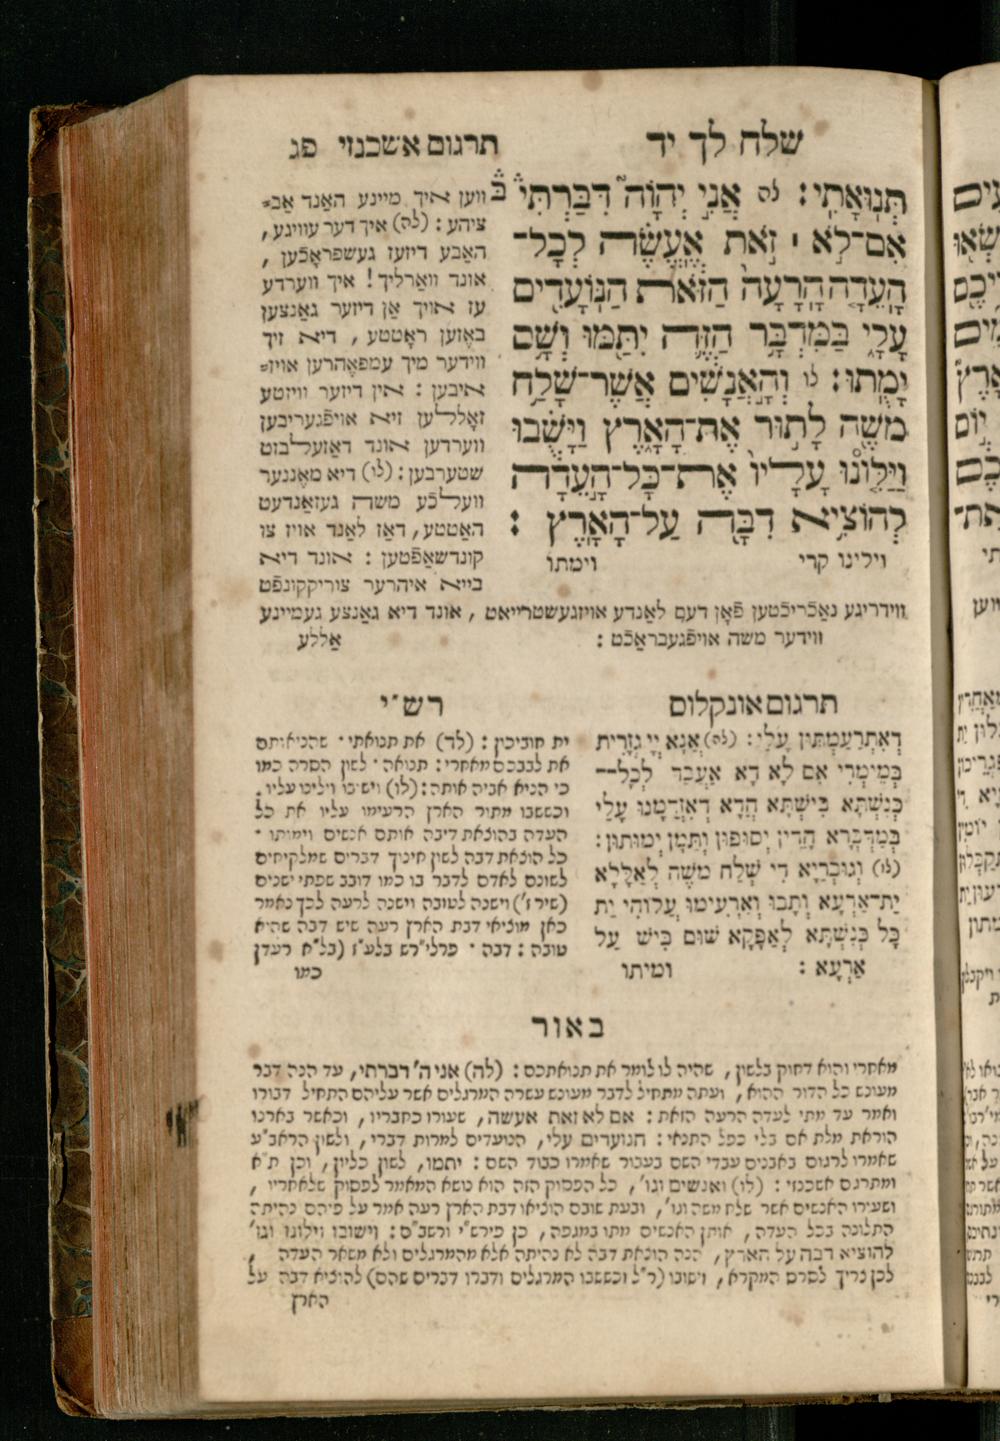 שלח לך יד
תרגום אשכנזי פג
תְּנֽוּאָתִֽי׃ לה אֲנִ֣י יְהֹוָה֮ דִּבַּ֒רְתִּי֒
אִם־לֹ֣א ׀ זֹ֣את אֶֽעֱשֶׂ֗ה לְכׇל־
הָֽעֵדָ֤ה הָֽרָעָה֙ הַזֹּ֔את הַנּֽוֹעָדִ֖ים
עָלָ֑י בַּמִּדְבָּ֥ר הַזֶּ֛ה יִתַּ֖מּוּ וְשָׁ֥ם
יָמֻֽתוּ׃ לו וְהָ֣אֲנָשִׁ֔ים אֲשֶׁר־שָׁלַ֥ח
משֶׁ֖ה לָת֣וּר אֶת־הָאָ֑רֶץ וַיָּשֻׁ֗בוּ
וַיַּלִּ֤ונוּ עָלָיו֙ אֶת־כׇּל־הָ֣עֵדָ֔ה
לְהוֹצִ֥יא דִבָּ֖ה עַל־הָאָֽרֶץ ׃
וילינו קרי
וימתו
ווען איך מיינע האַנד אב=
ציהע : (לה) איך דער עוויגע ,
האַבע דיזעז געשפּראָכֿען ,
אונד וואַרליך! איך ווערדע
עז אויך אַן דיזער גאַנצען
באָזען ראָטטע , דיא זיך
ווידער מיך עמפאָהרען אויז=
איבען : אין דיזער וויזטע
זאָללען זיא אויפֿגעריבען
ווערדען אונד דאַזעלבזט
שטערבען : (לו) דיא מאֶננער
וועלכֿע משה געזאַנדעט
האַטטע, דאַז לאַנד אויז צו
קונדשאַפֿטען : אונד דיא
בייא איהרער צוריקקונפֿט
ווידריגע נאַכֿריכֿטען פֿאָן דעם לאַנדע אויזגעשטרייאט , אונד דיא גאַנצע געמיינע
ווידער משה אויפֿגעבראַכֿט :
אַללע
תרגום אונקלוס
דְאִתְרַעַמְתּוּן עֲלָי׃ (לה) אֲנָא יְיָ גְזָרִית
בְּמֵימְרִי אִם לָא דָא אַעְבֵּד לְכָל־־
כְּנִשְׁתָּא בִּישְׁתָּא הֲדָא דְאִזְדַּמָנוּ עֲלָי
בְּמַדְבְּרָא הָדֵין יְסוּפוּן וְתַמָּן יְמוּתוּן׃
(לו) וְגוּבְרַיָא דִי שְׁלַח משֶׁה לְאַלָּלָא
יַת־אַרְעָא וְתָבוּ וְאַרְעִימוּ עֲלוֹהִי יַת
כָּל כְּנִשְׁתָּא לְאַפָּקָא שׁוּם בִּישׁ עַל
אַרְעָא :
ומיתו
רש״י
ית חוביכון : (לד) את תנואתי ׳ שהניאותם
את לבבכם מאחרי : תנואה ׳ לשון הסרה כמו
כי הניא אביה אותה : (לו) וישובו וילינו עליו .
וכששבו מתור הארץ הרעימו עליו את כל
העדה בהוצאת דיבה אותם אנשים וימותו ׳
כל הוצאת דבה לשון חינוך דברים שמלקיחים
לשונם לאדם לדבר בו כמו דובב שפתי ישנים
(שיר ז') וישנה לטובה וישנה לרעה לכך נאמר
כאן מוציאי דבת הארץ רעה שיש דבה שהיא
טובה : דבה ׳ פרלי״רש בלע״ז (בל״א רעדן
כמו
באור
מאחרי והוא דחוק בלשון , שהיה לו לומר את תנואתכם : (לה) אני ה' דברתי , עד הנה דבר
מעונש כל הדור ההוא , ועתה מתחיל לדבר מעונש עשרה המרגלים אשר עליהם התחיל דבורו
ואמר עד מתי לעדה הרעה הזאת : אם לא זאת אעשה , שעורו כחבריו , וכאשר בארנו
הוראת מלת אם בלי כפל התנאי : הנועדים עלי , הנועדים למרות דברי , ולשון הראב״ע
שאמרו לרגום באבנים עבדי השם בעבור שאמרו כבוד השם : יתמו , לשון כליון , וכן ת״א
ומתרגם אשכנזי : (לו) ואנשים וגו' , כל הפסוק הזה הוא נושא המאמר לפסוק שלאחריו ,
ושעירו האנשים אשר שלח משה וגו' , ובעת שובם הוציאו דבת הארץ רעה אמר על פיהם נהיתה
התלונה בכל העדה , אותן האנשים מתו במגפה , כן פירש״י ורשב״ם : וישובו וילונו וגו'
להוציא דבה על הארץ , הנה הוצאת דבה לא נהיתה אלא מהמרגלים ולא משאר העדה ,
לכן צריך לסרס המקרא , וישובו (ר״ל וכששבו המרגלים ודברו דברים שהם) להוציא דבה על
הארץ